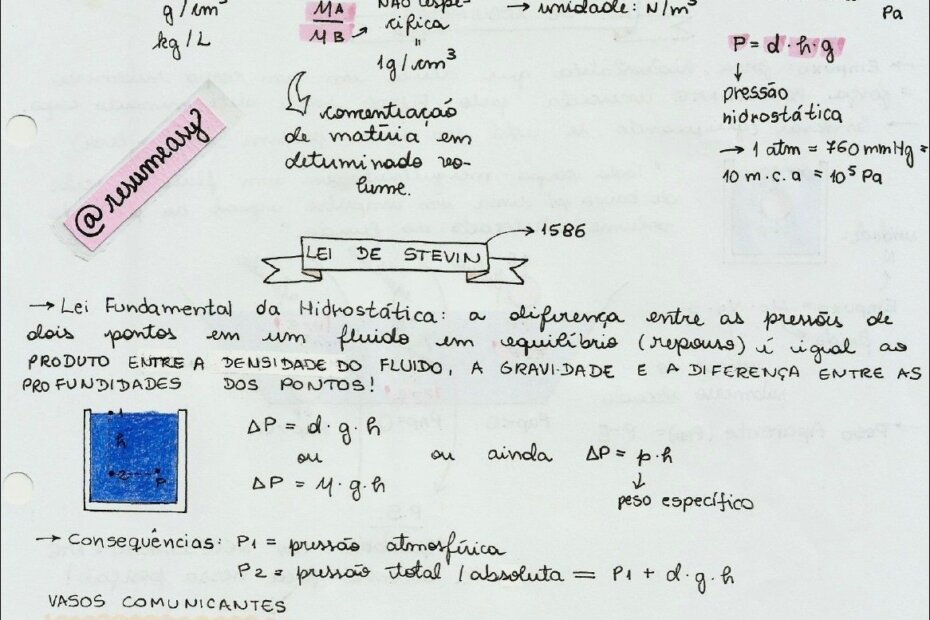 g/cm³
kg/L
μA
μB
cífica
"
1g/cm³
→ unidade: N/m³
Pa
P = d·h·g
pressão
hidrostática
→ 1 atm = 760 mmHg =
10 m.c.a = 10⁵ Pa
concentração
de matéria em
determinado vo-
lume.
@resumeasy
LEI DE STEVIN → 1586
→ Lei Fundamental da Hidrostática: a diferença entre as pressões de
dois pontos em um fluido em equilíbrio (repouso) é igual ao
PRODUTO ENTRE A DENSIDADE DO FLUIDO, A GRAVIDADE E A DIFERENÇA ENTRE AS
PROFUNDIDADES DOS PONTOS!
1
h
2
P
ΔP = d·g·h
ou
ΔP = μ·g·h
ou ainda ΔP = p·h
peso específico
→ Consequências: P1 = pressão atmosférica
P2 = pressão total / absoluta = P1 + d·g·h
VASOS COMUNICANTES